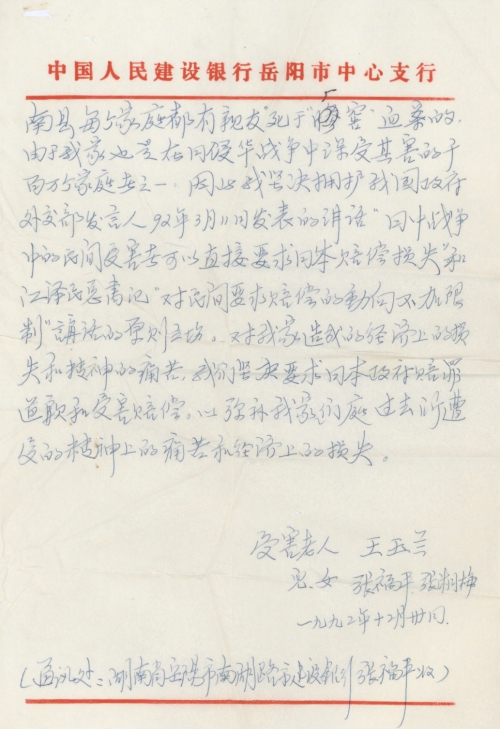 中国人民建设银行岳阳市中心支行
南县每个家庭都有亲友死于"厂窖"血案的.
由于我家也是在日侵华战争中深受其害的千
百万个家庭者之一. 因此我坚决拥护我国政府
外交部发言人92年3月11日发表的讲话"日中战争
中的民间受害者可以直接要求日本赔偿损失"和
江泽民总书记"对民间要求赔偿的動向不加限
制"講话的原则立场. 对我家造成的经济上的损
失和精神的痛苦. 我们坚决要求日本政府赔罪
道歉和受害赔偿. 以弥补我家们庭过去所遭
受的精神上的痛苦和经济上的损失。
受害老人 王玉兰
児女 张福平 张
一九九二年十二月廿日
(通讯处: 湖南省岳阳市南湖路市建设银行 张福平收)